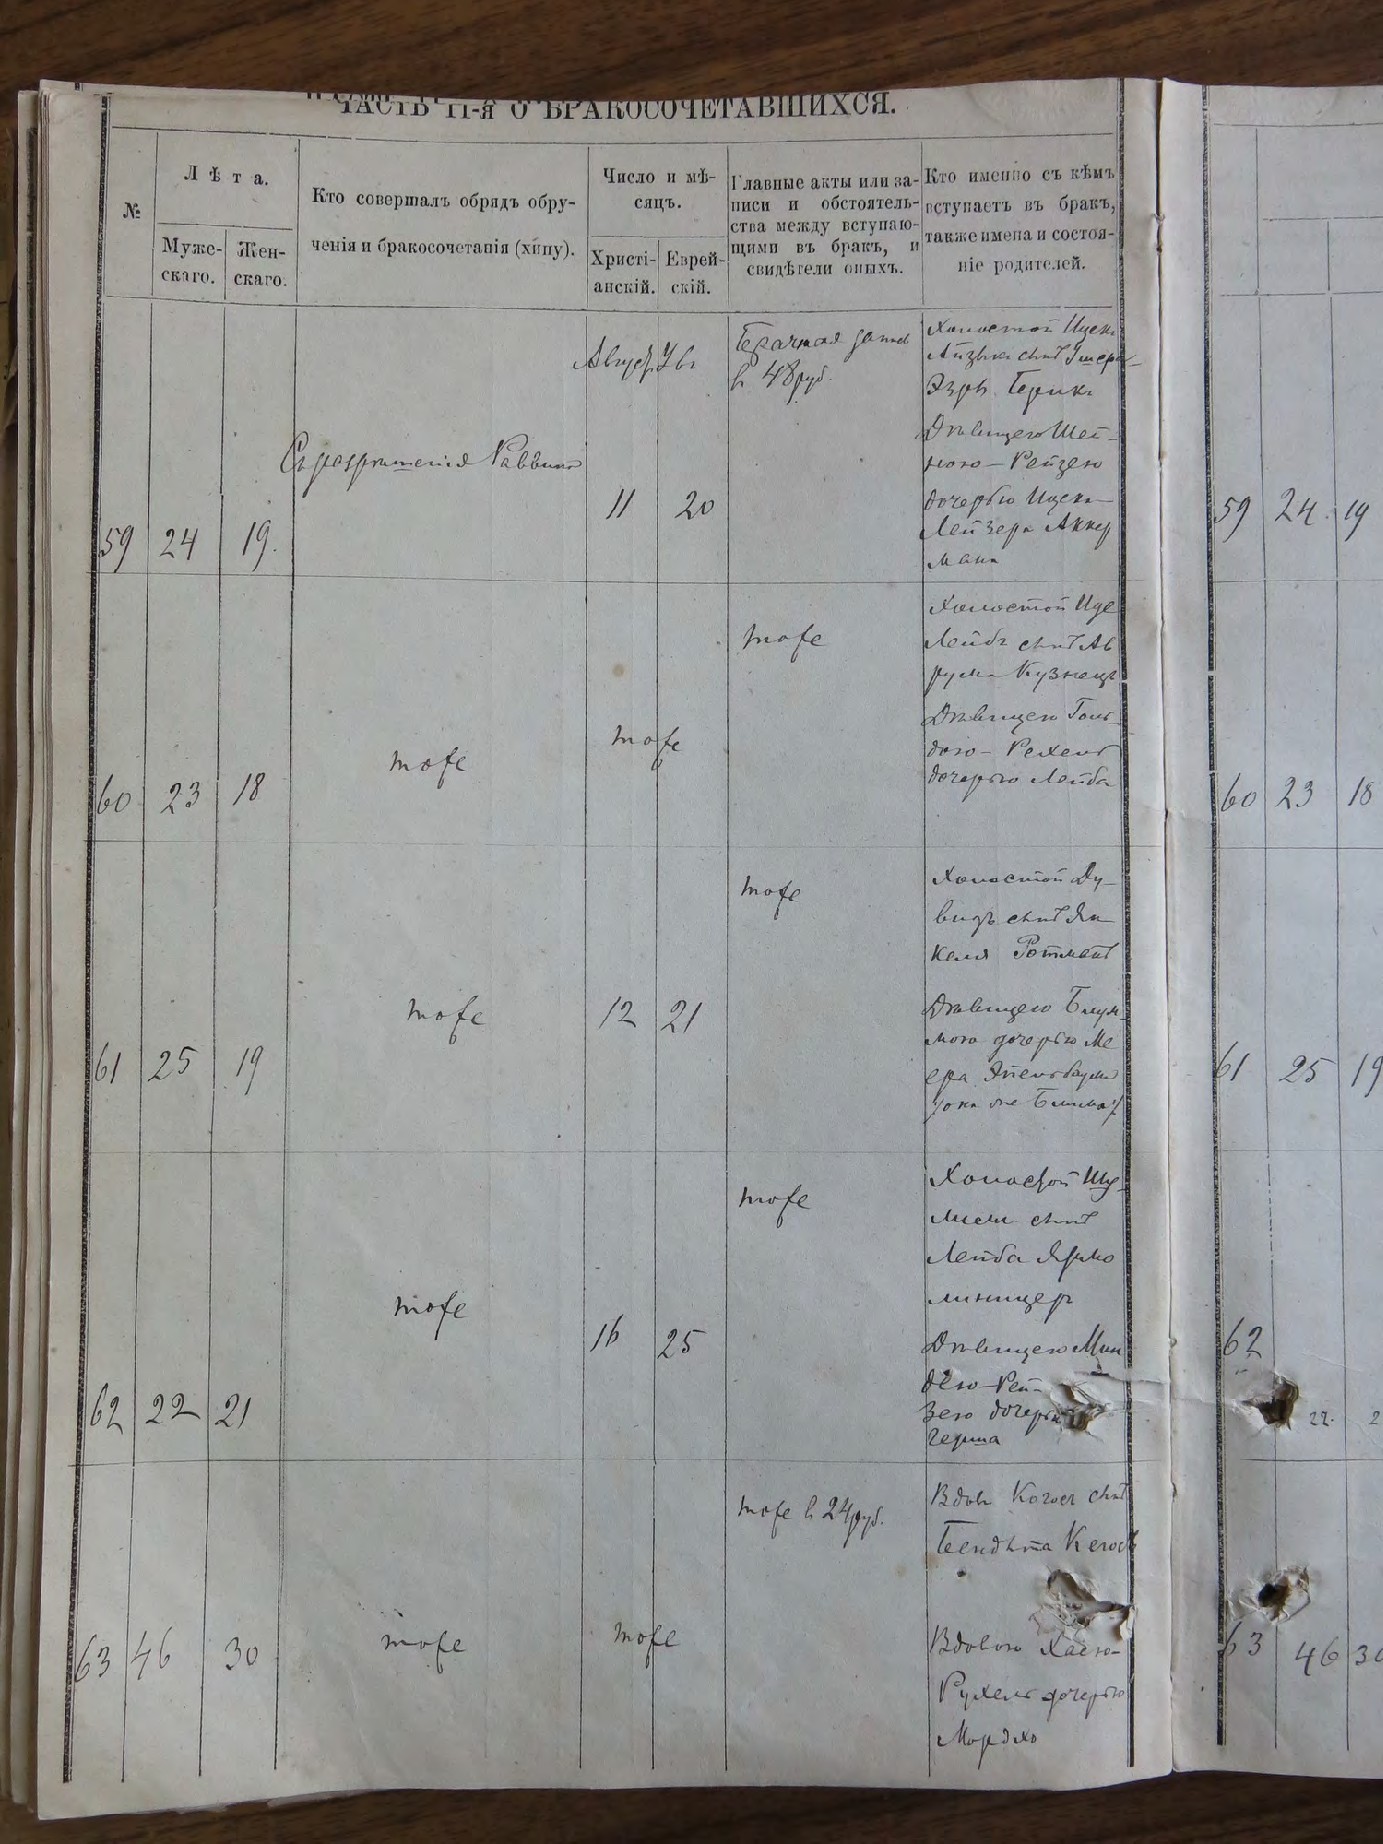 ЧАСТЬ II-я О БРАКОСОЧЕТАВШИХСЯ.
№
Лѣта.
Муже-
скаго.
Жен-
скаго.
Кто совершалъ обрядъ обру-
ченія и бракосочетанія (хипу).
Число и мѣ-
сяцъ.
Христі-
анскій.
Еврей-
скій.
Главные акты или за-
писи и обстоятель-
ства между вступаю-
щими въ бракъ, и
свидѣтели оныхъ.
Кто именно съ кѣмъ
вступаетъ въ бракъ,
также имена и состоя-
ніе родителей.
59
24
19.
Съ разрешенія Раввина
11
20
Брачная
в 48 руб.
Холостой Ицекъ
Айзыкъ сынъ
Берикъ
Дѣвицею Шей-
ною-Рейзею
дочерью Ицека-
Лейзера Аккер
мана
60
23
18
тоже
тоже
тоже
Холостой Иде
Лейбъ сынъ Ав
рума Кузнецъ
Дѣвицею Голь-
дою-Рехель
дочерью Лейба
61
25
19
тоже
12
21
тоже
Холостой Ду-
видъ сынъ Ян
келя Ротманъ
Дѣвицею Блун-
мою дочерью Ме
ера Эпельбаума
/она же Блима/
62
22
21
тоже
16
25
тоже
Холостой Шу-
лимъ сынъ
Лейба Ярмо
линицеръ
Дѣвицею Мин
дею-Рей-
зею дочерью
Герша
63
46
30
тоже
тоже
тоже в 24 руб.
Вдов сынъ
Вдовою Хаею-
Рухель дочерью
Мордко
59
24
19
60
23
18
61
25
19
62
22.
63
46